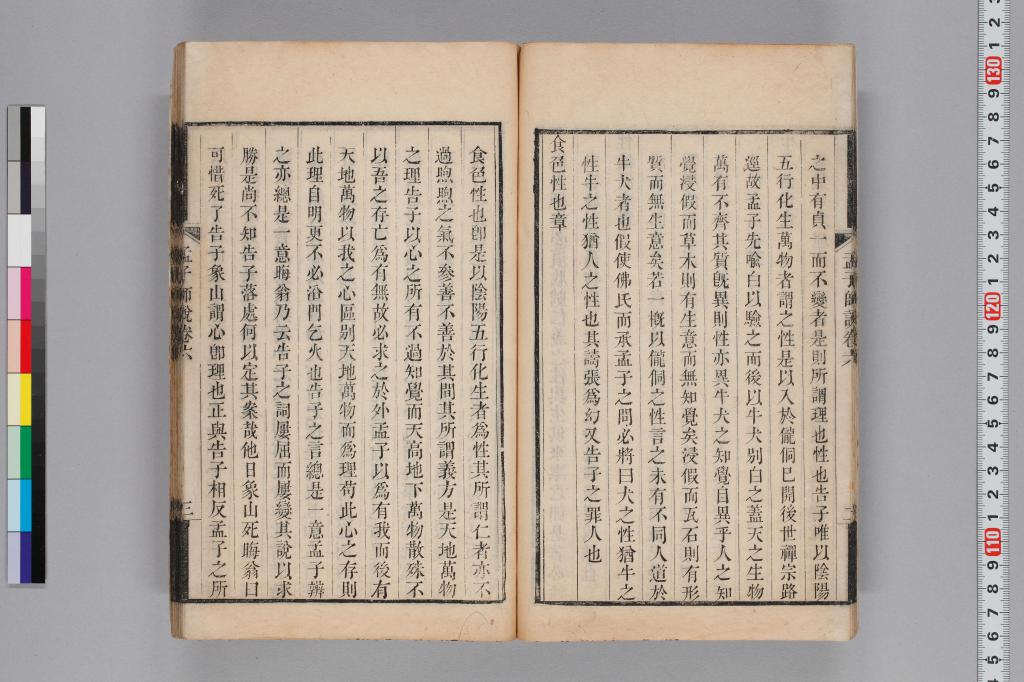 之中有貞一而不變者是則所謂理也性也告子唯以陰陽
五行化生萬物者謂之性是以入於儱侗已開後世禪宗路
逕故孟子先喻白以驗之而後以牛犬别白之蓋天之生物
萬有不齊其質旣異則性亦異牛犬之知覺自異乎人之知
覺浸假而草木則有生意而無知覺矣浸假而瓦石則有形
質而無生意矣若一槪以儱侗之性言之未有不同人道於
牛犬者也假使佛氏而承孟子之問必將曰犬之性猶牛之
性牛之性猶人之性也其譸張爲幻又告子之罪人也
食色性也章
孟子師說卷六
食色性也卽是以陰陽五行化生者爲性其所謂仁者亦不
過煦煦之氣不參善不善於其間其所謂義方是天地萬物
之理告子以心之所有不過知覺而天高地下萬物散殊不
以吾之存亡爲有無故必求之於外孟子以爲有我而後有
天地萬物以我之心區别天地萬物而爲理苟此心之存則
此理自明更不必沿門乞火也告子之言總是一意孟子辨
之亦總是一意晦翁乃云告子之詞屢屈而屢變其說以求
勝是尚不知告子落處何以定其案哉他日象山死晦翁曰
可惜死了告子象山謂心卽理也正與告子相反孟子之所
孟子師說卷六
三